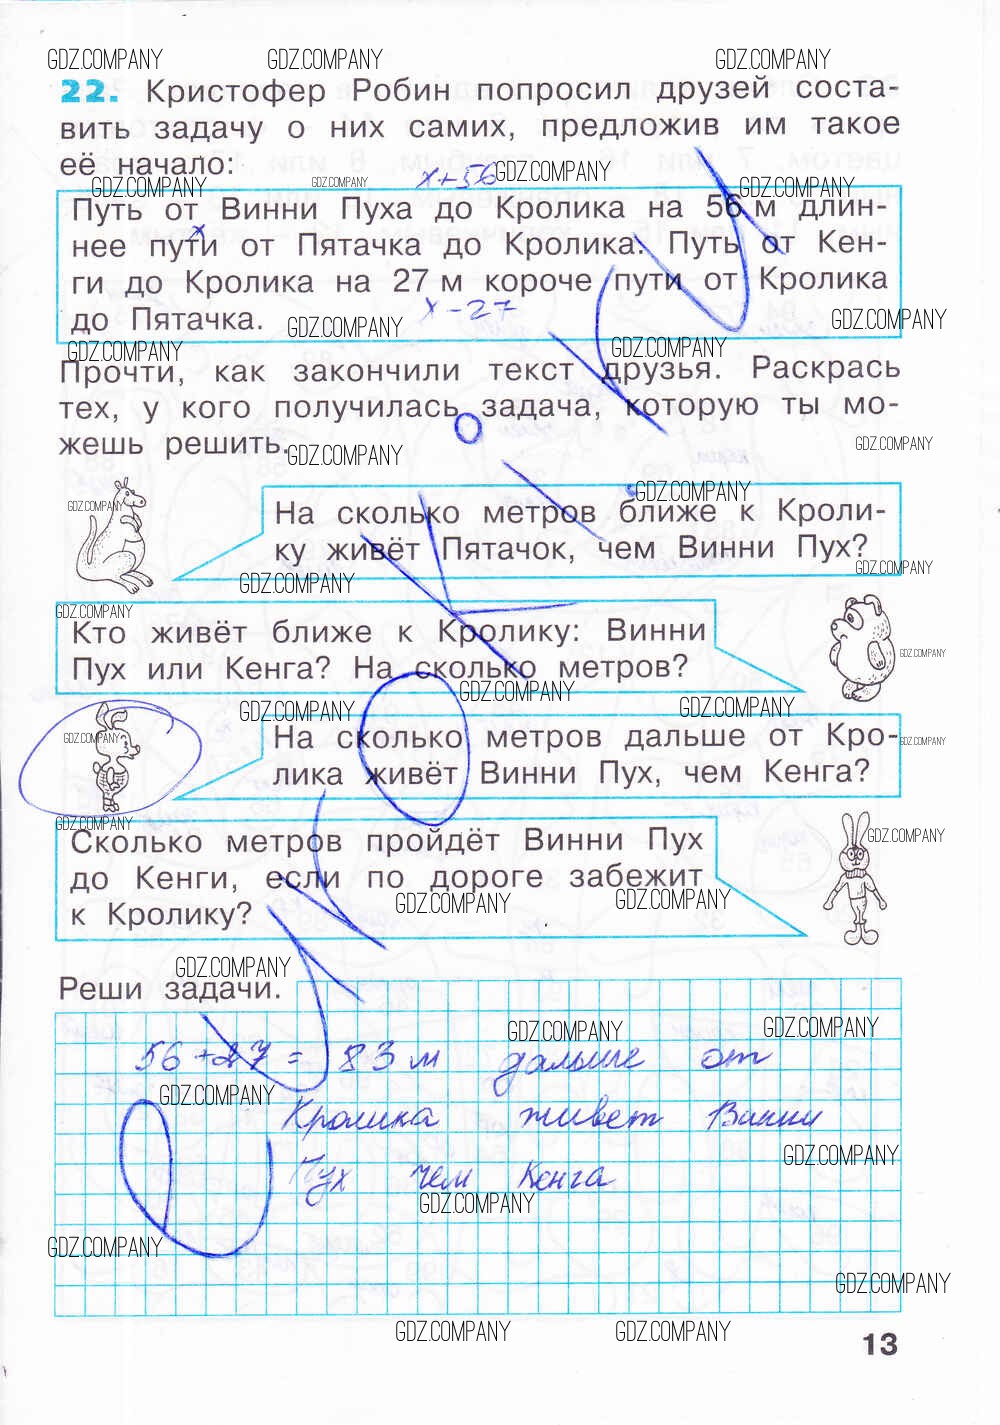 GDZ.COMPANY GDZ.COMPANY GDZ.COMPANY
22. Кристофер Робин попросил друзей соста-
вить задачу о них самих, предложив им такое
её начало:
GDZ.COMPANY
GDZ.COMPANY GDZ.COMPANY x+56 GDZ.COMPANY
Путь от Винни Пуха до Кролика на 56 м длин-
x
нее пути от Пятачка до Кролика. Путь от Кен-
ги до Кролика на 27 м короче пути от Кролика
до Пятачка. GDZ.COMPANY x-27 GDZ.COMPANY
GDZ.COMPANY GDZ.COMPANY
Прочти, как закончили текст друзья. Раскрась
тех, у кого получилась задача, которую ты мо-
жешь решить. GDZ.COMPANY GDZ.COMPANY
GDZ.COMPANY GDZ.COMPANY
На сколько метров ближе к Кроли-
ку живёт Пятачок, чем Винни Пух?
GDZ.COMPANY GDZ.COMPANY
GDZ.COMPANY
Кто живёт ближе к Кролику: Винни
GDZ.COMPANY
Пух или Кенга? На сколько метров?
GDZ.COMPANY
GDZ.COMPANY GDZ.COMPANY
GDZ.COMPANY GDZ.COMPANY
На сколько метров дальше от Кро-
лика живёт Винни Пух, чем Кенга?
GDZ.COMPANY GDZ.COMPANY
Сколько метров пройдёт Винни Пух
до Кенги, если по дороге забежит
к Кролику? GDZ.COMPANY GDZ.COMPANY
GDZ.COMPANY
Реши задачи.
GDZ.COMPANY GDZ.COMPANY
56 + 27 = 83 м дальше от
GDZ.COMPANY
Кролика живет Винни
GDZ.COMPANY
Пух чем Кенга
GDZ.COMPANY
GDZ.COMPANY
GDZ.COMPANY
GDZ.COMPANY GDZ.COMPANY
13